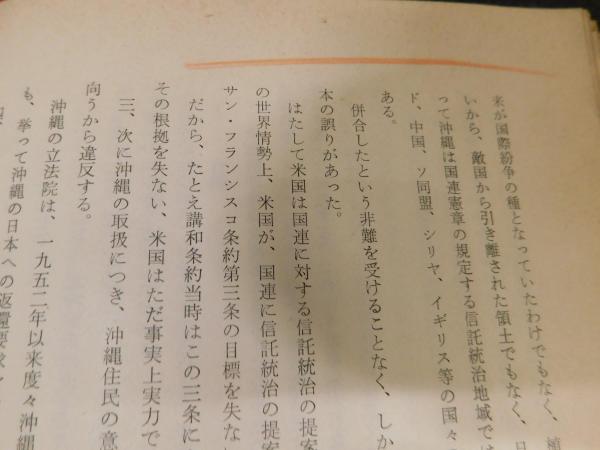 来が国際紛争の種となっていたわけでもなく、植
いから、敵国から引き離された領土でもなく、日
って沖縄は国連憲章の規定する信託統治地域では
ド、中国、ソ同盟、シリヤ、イギリス等の国々
ある。
併合したという非難を受けることなく、しか
本の誤りがあった。
はたして米国は国連に対する信託統治の提案
の世界情勢上、米国が、国連に信託統治の提案
サン・フランシスコ条約第三条の目標を失な
だから、たとえ講和条約当時はこの三条に
その根拠を失ない、米国はただ事実上実力で
三、次に沖縄の取扱につき、沖縄住民の意
向うから違反する。
沖縄の立法院は、一九五二年以来度々沖縄
も、挙って沖縄の日本への返還要求